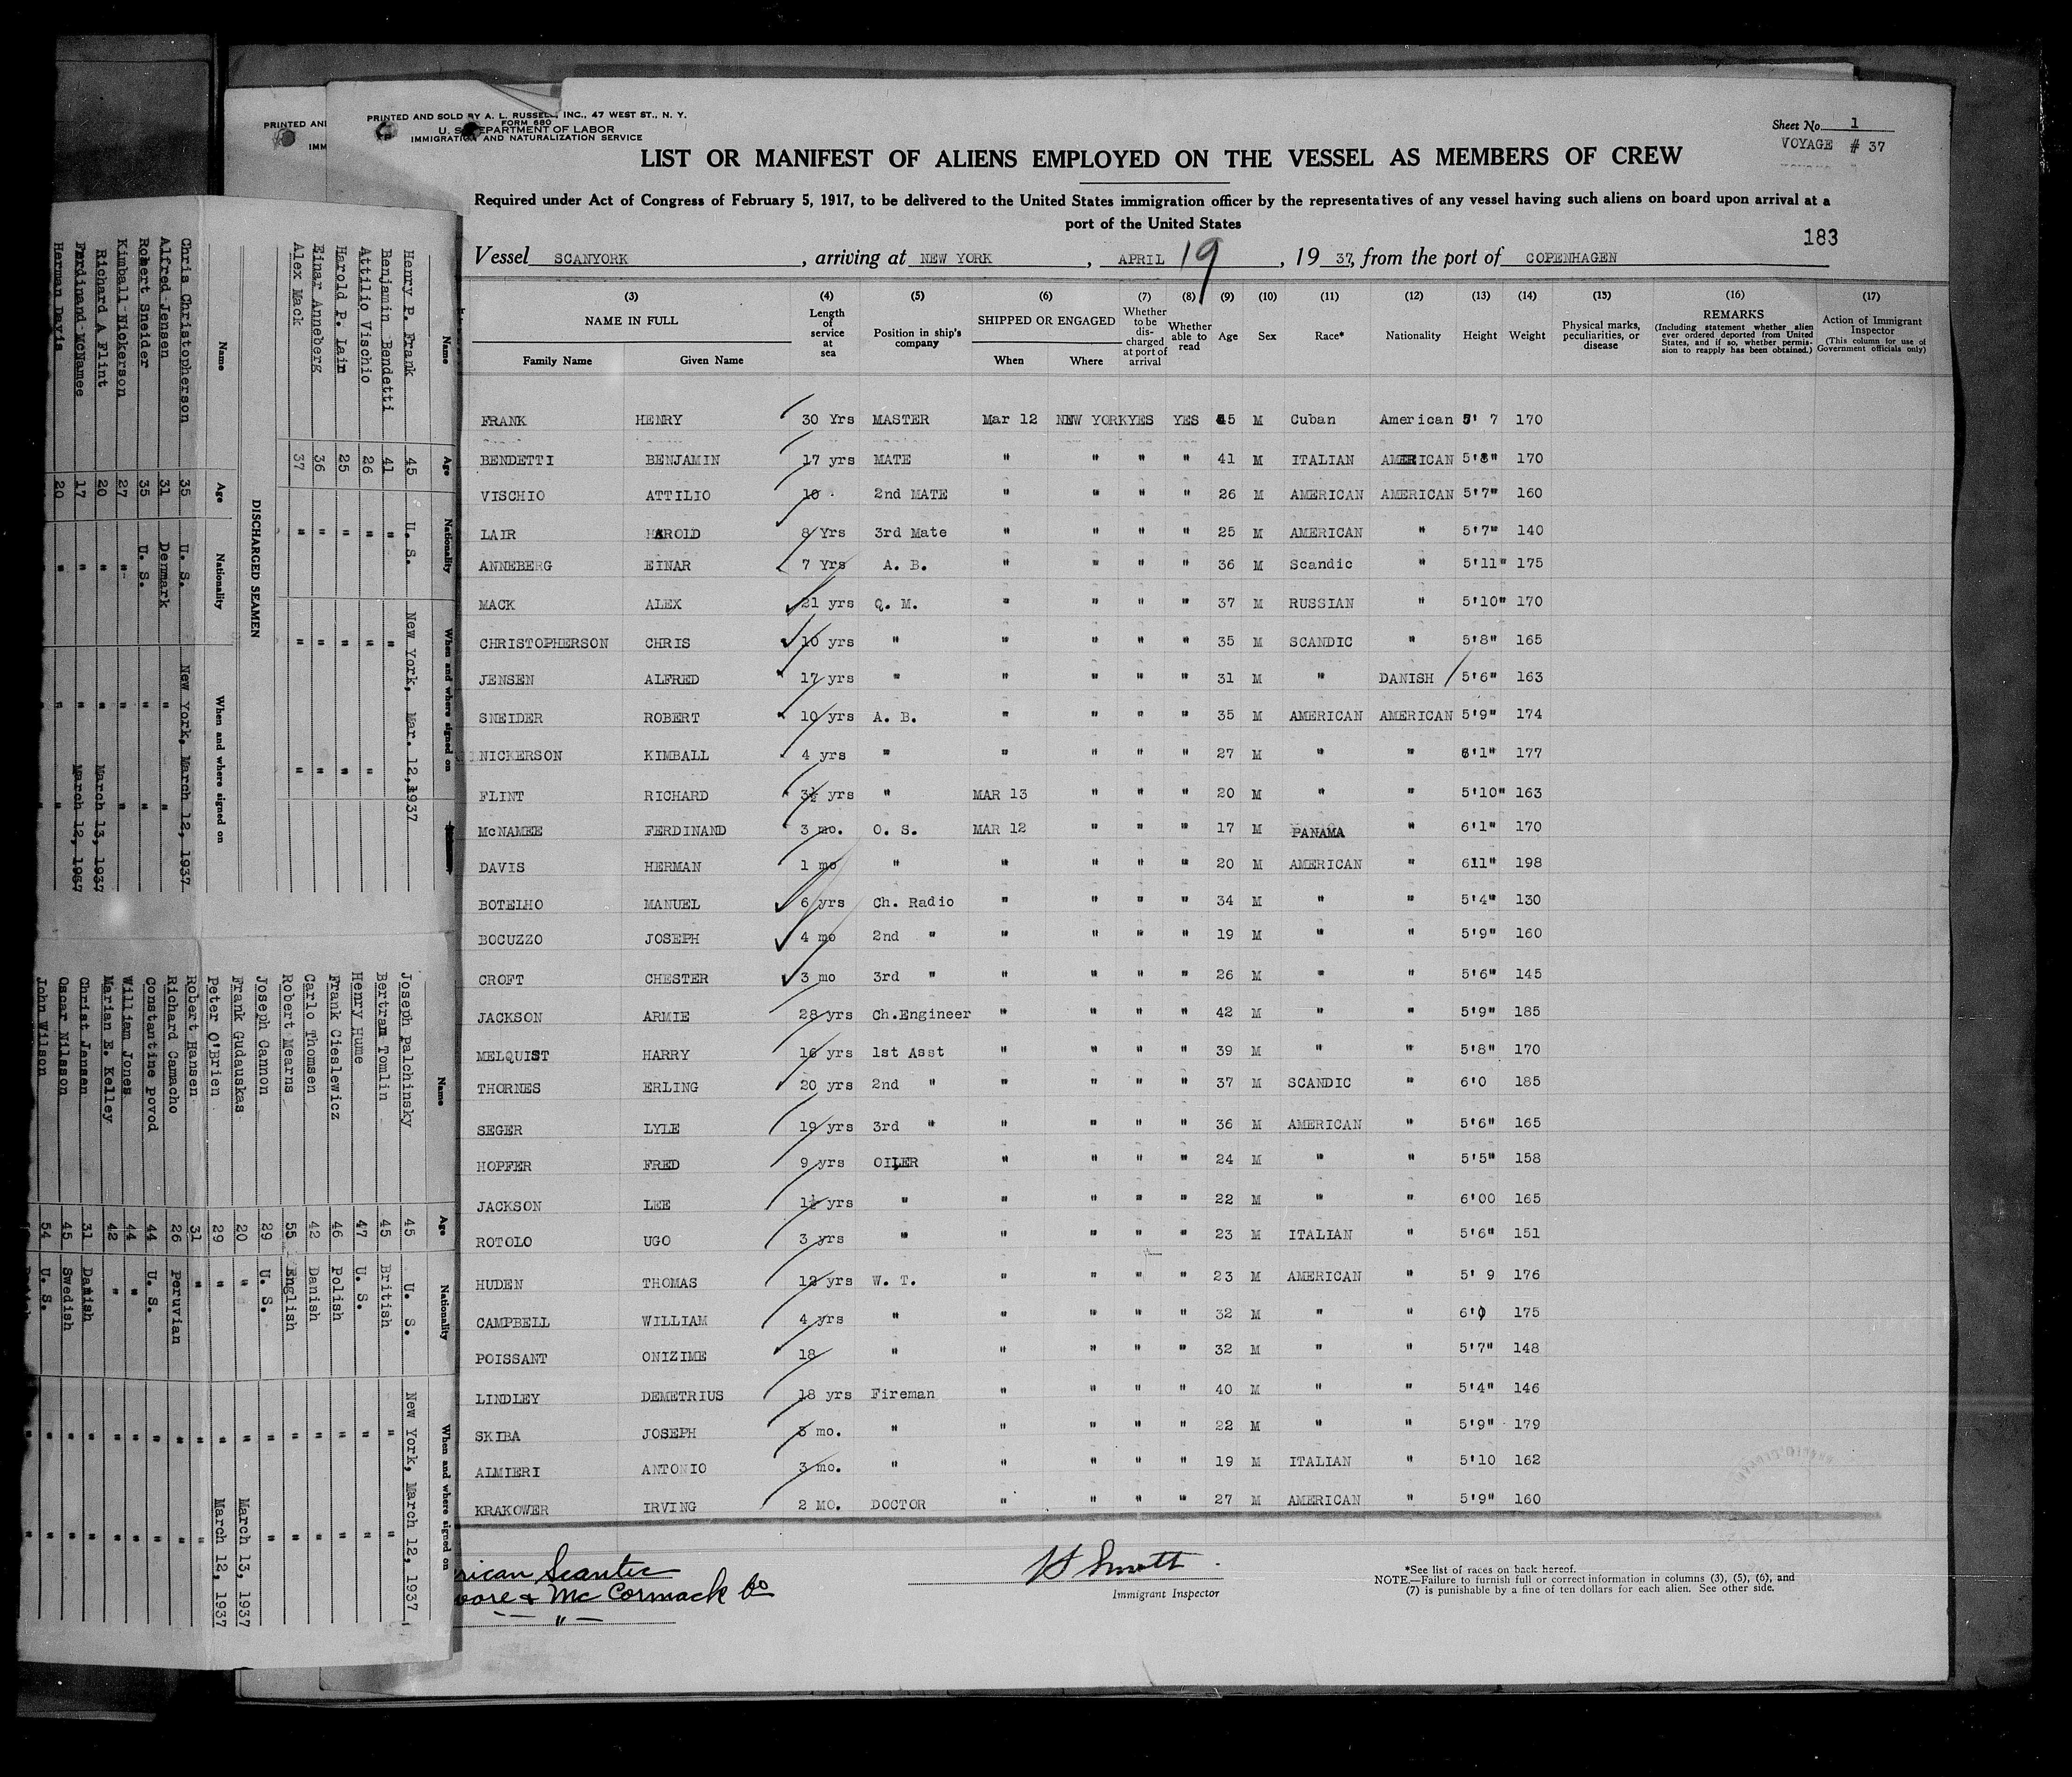 PRINTED AND SOLD BY A. L. RUSSELL, INC., 47 WEST ST., N. Y.
FORM 680
U. S. DEPARTMENT OF LABOR
IMMIGRATION AND NATURALIZATION SERVICE
PRINTED AND
IMM
Sheet No. 1
VOYAGE # 37
LIST OR MANIFEST OF ALIENS EMPLOYED ON THE VESSEL AS MEMBERS OF CREW
Required under Act of Congress of February 5, 1917, to be delivered to the United States immigration officer by the representatives of any vessel having such aliens on board upon arrival at a
port of the United States
183
Vessel SCANYORK, arriving at NEW YORK, APRIL 19, 19 37, from the port of COPENHAGEN
(3) (4) (5) (6) (7) (8) (9) (10) (11) (12) (13) (14) (15) (16) (17)
NAME IN FULL
Family Name Given Name
Length of service at sea
Position in ship's company
SHIPPED OR ENGAGED
When Where
Whether to be discharged at port of arrival
Whether able to read
Age Sex Race* Nationality Height Weight
Physical marks, peculiarities, or disease
REMARKS
(Including statement whether alien ever ordered deported from United States, and if so, whether permission to reapply has been obtained.)
Action of Immigrant Inspector
(This column for use of Government officials only)
FRANK HENRY 30 Yrs MASTER Mar 12 NEW YORK YES YES 45 M Cuban American 5' 7 170
BENDETTI BENJAMIN 17 yrs MATE " " " " 41 M ITALIAN AMERICAN 5'8" 170
VISCHIO ATTILIO 10 2nd MATE " " " " 26 M AMERICAN AMERICAN 5'7" 160
LAIR HAROLD 8 Yrs 3rd Mate " " " " 25 M AMERICAN " 5'7" 140
ANNEBERG EINAR 7 Yrs A. B. " " " " 36 M Scandic " 5'11" 175
MACK ALEX 21 yrs Q. M. " " " " 37 M RUSSIAN " 5'10" 170
CHRISTOPHERSON CHRIS 10 yrs " " " " " 35 M SCANDIC " 5'8" 165
JENSEN ALFRED 17 yrs " " " " " 31 M " DANISH 5'6" 163
SNEIDER ROBERT 10 yrs A. B. " " " " 35 M AMERICAN AMERICAN 5'9" 174
NICKERSON KIMBALL 4 yrs " " " " " 27 M " " 6'1" 177
FLINT RICHARD 3½ yrs " MAR 13 " " " 20 M " " 5'10" 163
McNAMEE FERDINAND 3 mo. O. S. MAR 12 " " " 17 M PANAMA " 6'1" 170
DAVIS HERMAN 1 mo " " " " " 20 M AMERICAN " 611" 198
BOTELHO MANUEL 6 yrs Ch. Radio " " " " 34 M " " 5'4" 130
BOCUZZO JOSEPH 4 mo 2nd " " " " " 19 M " " 5'9" 160
CROFT CHESTER 3 mo 3rd " " " " " 26 M " " 5'6" 145
JACKSON ARMIE 28 yrs Ch.Engineer " " " " 42 M " " 5'9" 185
MELQUIST HARRY 16 yrs 1st Asst " " " " 39 M " " 5'8" 170
THORNES ERLING 20 yrs 2nd " " " " " 37 M SCANDIC " 6'0 185
SEGER LYLE 19 yrs 3rd " " " " " 36 M AMERICAN " 5'6" 165
HOPFER FRED 9 yrs OILER " " " " 24 M " " 5'5" 158
JACKSON LEE 1½ yrs " " " " " 22 M " " 6'00 165
ROTOLO UGO 3 yrs " " " " " 23 M ITALIAN " 5'6" 151
HUDEN THOMAS 12 yrs W. T. " " " " 23 M AMERICAN " 5' 9 176
CAMPBELL WILLIAM 4 yrs " " " " " 32 M " " 6'0 175
POISSANT ONIZIME 18 " " " " " 32 M " " 5'7" 148
LINDLEY DEMETRIUS 18 yrs Fireman " " " " 40 M " " 5'4" 146
SKIBA JOSEPH 3 mo. " " " " " 22 M " " 5'9" 179
ALMIERI ANTONIO 3 mo. " " " " " 19 M ITALIAN " 5'10 162
KRAKOWER IRVING 2 MO. DOCTOR " " " " 27 M AMERICAN " 5'9" 160
rican Scantic
oore & Mc Cormack Co
— " —
Immigrant Inspector
*See list of races on back hereof.
NOTE.—Failure to furnish full or correct information in columns (3), (5), (6), and
(7) is punishable by a fine of ten dollars for each alien. See other side.
Name Age Nationality When and where signed on
Henry P. Frank 45 U. S. New York, Mar. 12, 1937
Benjamin Bendetti 41 " "
Attilio Vischio 26 " " "
Harold P. Lair 25 " " "
Einar Anneberg 36 " " "
Alex Mack 37 " " "
DISCHARGED SEAMEN
Name Age Nationality When and where signed on
Chris Christopherson 35 U. S. New York, March 12, 1937
Alfred Jensen 31 Denmark " "
Robert Sneider 35 U. S. " "
Kimball Nickerson 27 " " "
Richard A Flint 20 " " March 13, 1937
Ferdinand McNamee 17 " " March 12, 1937
Herman Davis 20 " " "
Name Age Nationality When and where signed on
Joseph Palchinsky 45 U. S. New York, March 12, 1937
Bertram Tomlin 45 British " "
Henry Hume 47 U. S. " "
Frank Cieslewicz 46 Polish " "
Carlo Thomsen 42 Danish " "
Robert Mearns 55 English " "
Joseph Cannon 29 U. S. " "
Frank Gudauskas 20 " " March 13, 1937
Peter O'Brien 29 " " March 12, 1937
Robert Hansen 31 " " "
Richard Camacho 26 Peruvian " "
Constantine Povod 44 U. S. " "
William Jones 44 " " "
Marian E. Kelley 42 " " "
Christ Jensen 31 Danish " "
Oscar Nilsson 45 Swedish " "
John Wilson 54 U. S. " "